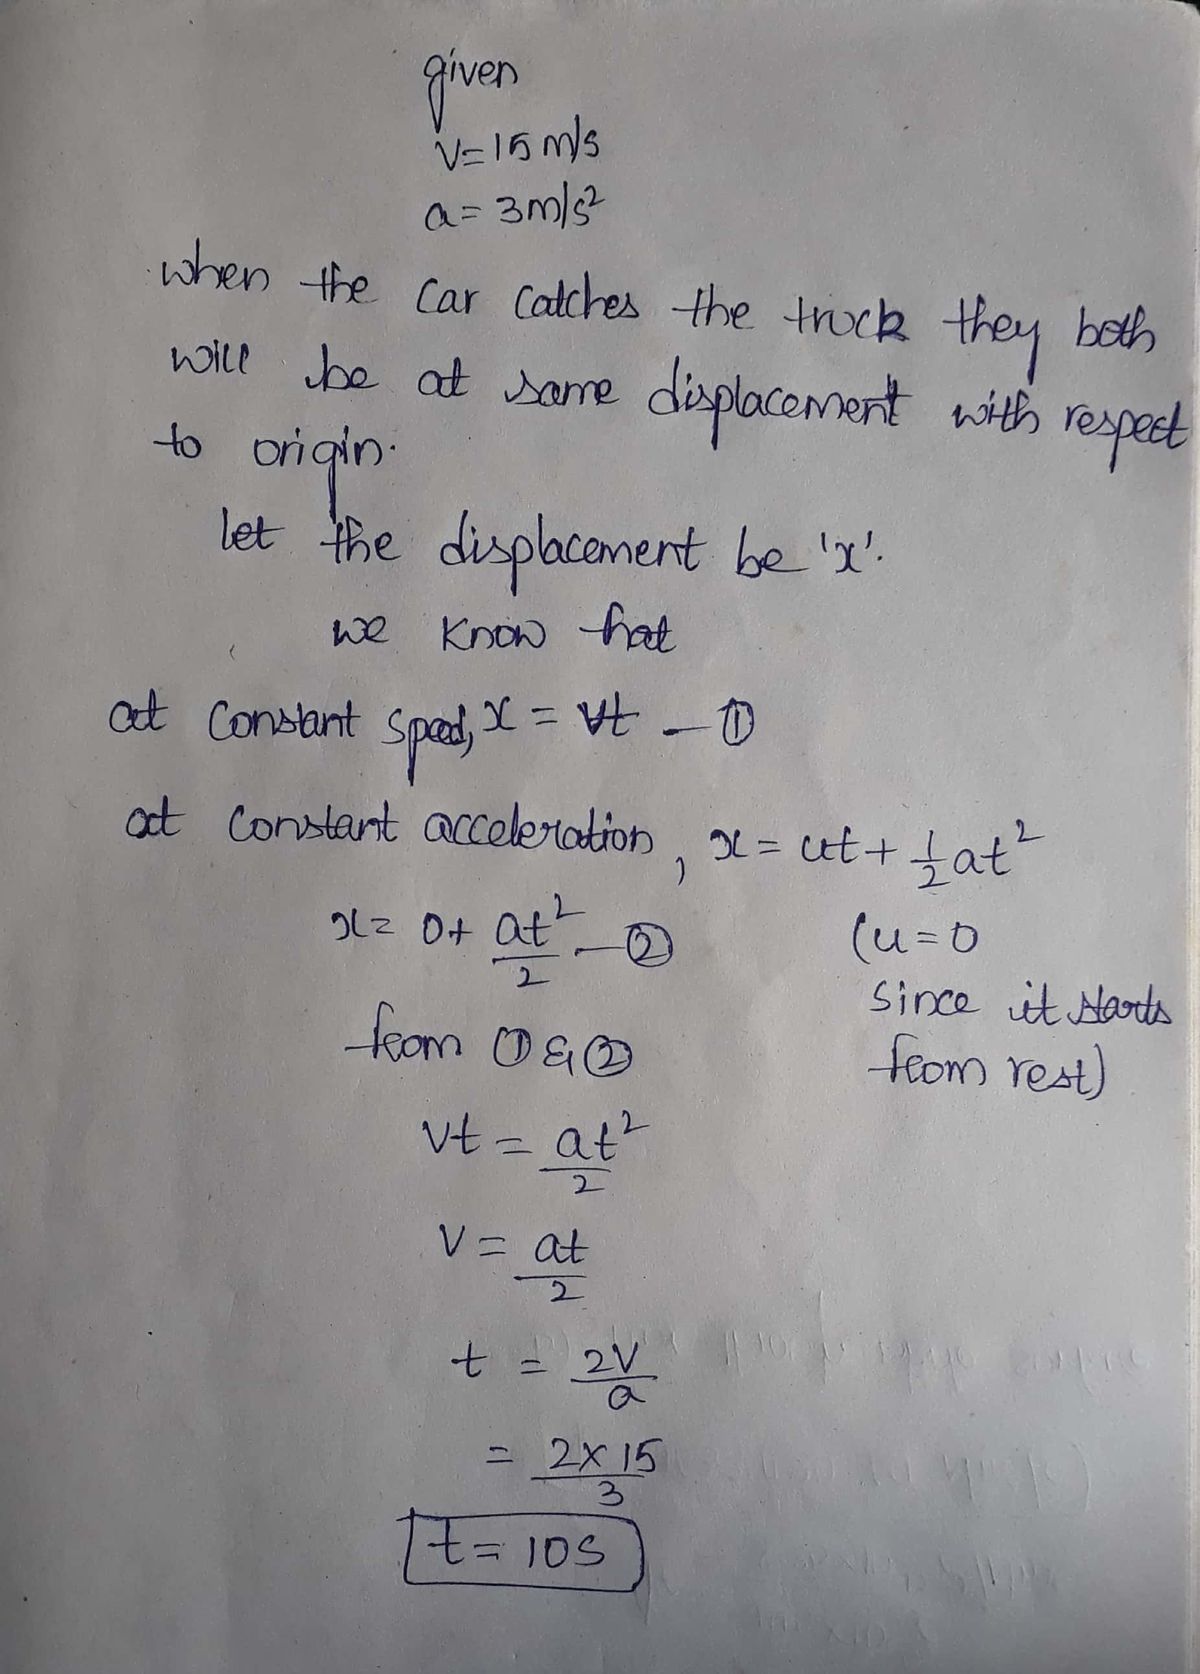 given
v=15 m/s
a= 3m/s²
when the car catches the truck they both
will be at same displacement with respect
to origin.
let the displacement be 'x'.
we know that
at constant speed, x = vt - ①
at constant acceleration, x = ut + 1/2 at²
x= 0+ at²/2 - ②
(u=0
since it starts
from rest)
from ① & ②
vt = at²/2
v = at/2
t = 2v/a
= 2×15/3
t= 10s